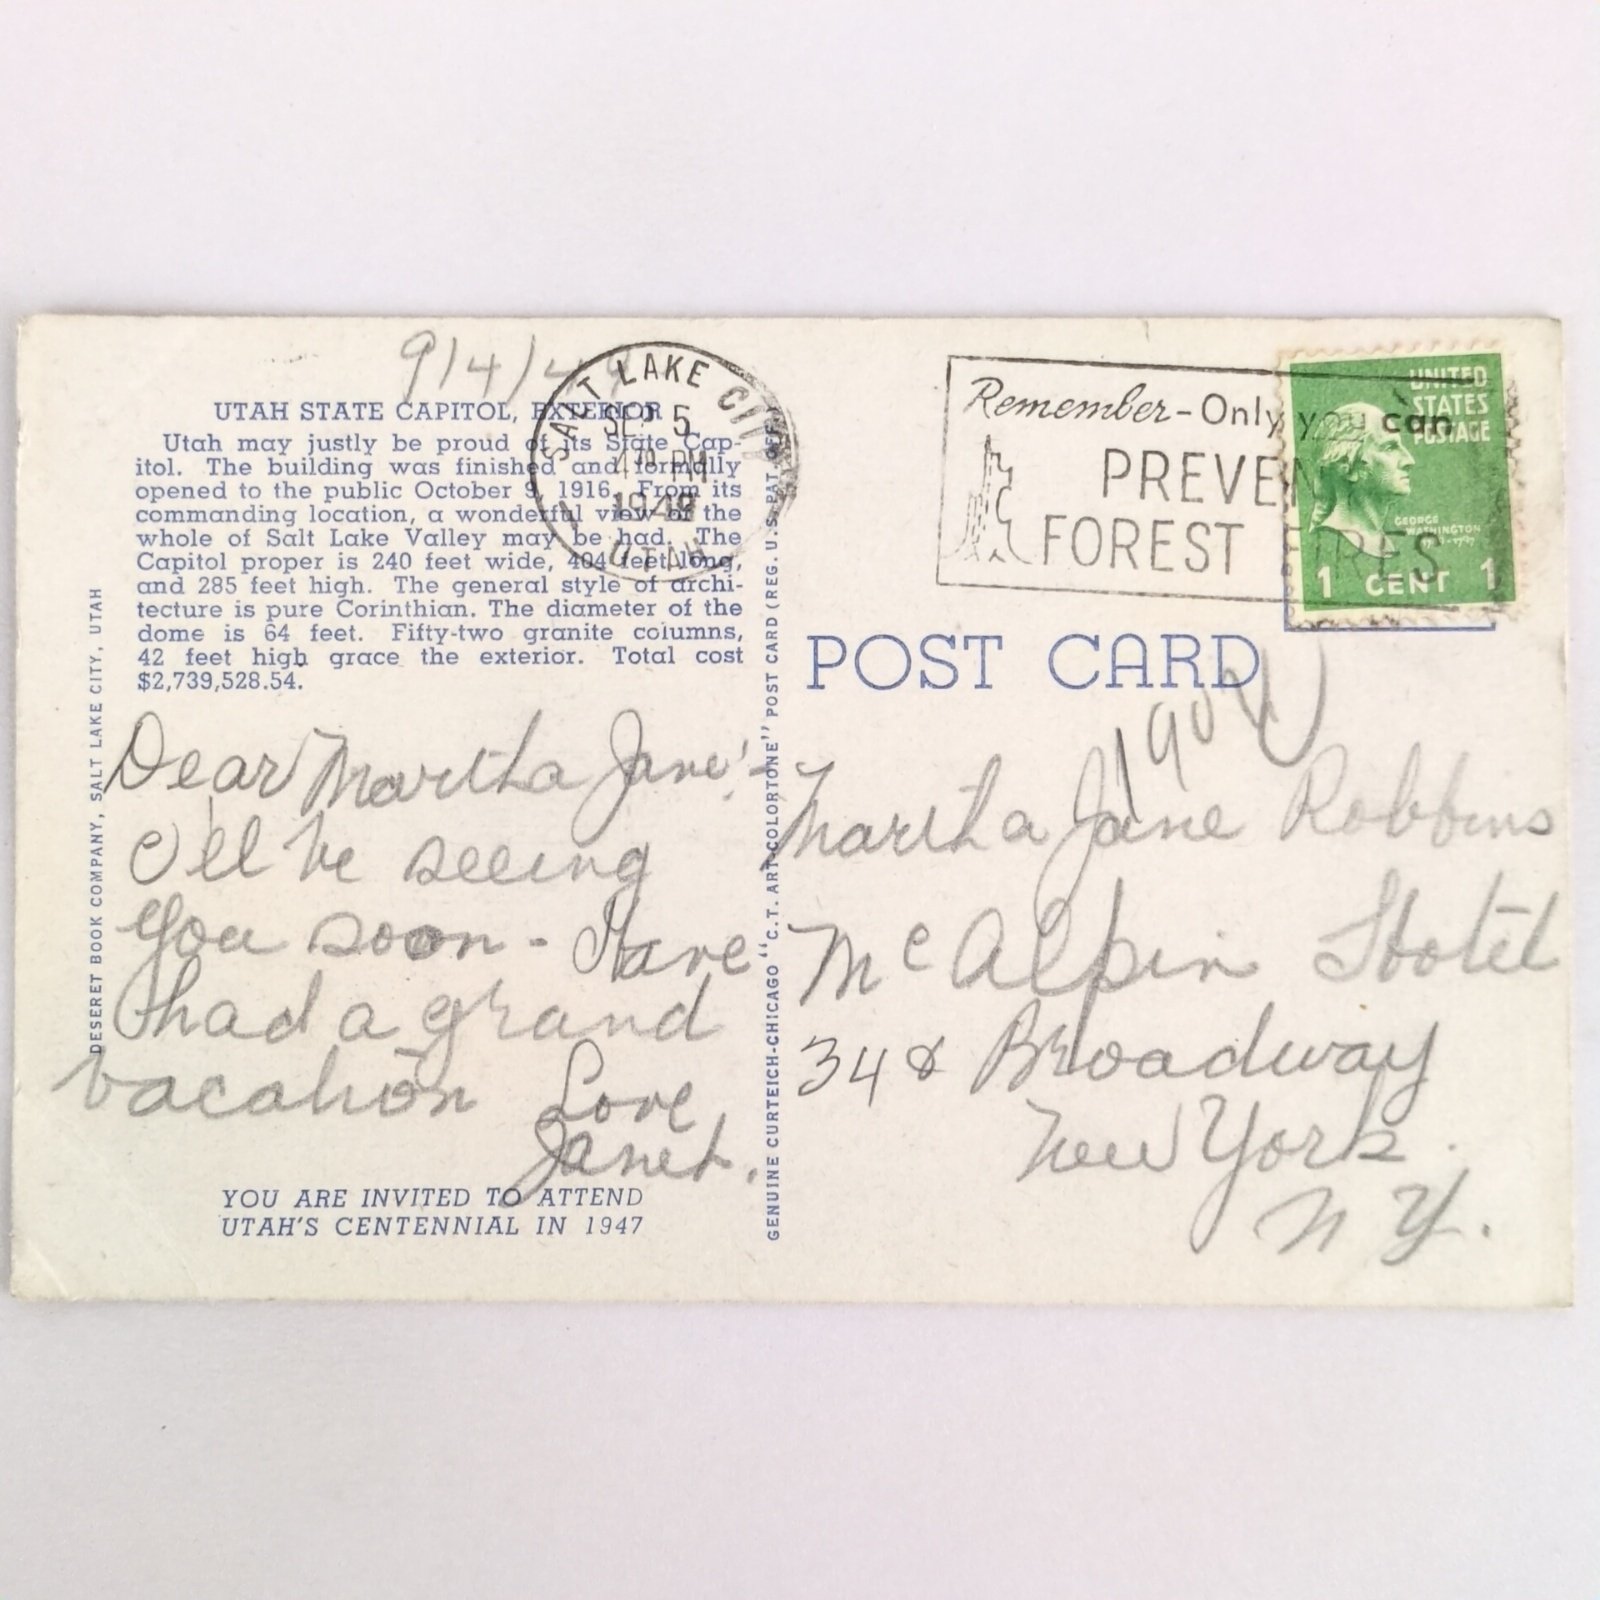 9/4/49
UTAH STATE CAPITOL, EXTERIOR
Utah may justly be proud of its State Cap-
itol. The building was finished and formally
opened to the public October 9, 1916. From its
commanding location, a wonderful view of the
whole of Salt Lake Valley may be had. The
Capitol proper is 240 feet wide, 404 feet long,
and 285 feet high. The general style of archi-
tecture is pure Corinthian. The diameter of the
dome is 64 feet. Fifty-two granite columns,
42 feet high grace the exterior. Total cost
$2,739,528.54.
SALT LAKE CITY
SEP 5
PM
1949
UTAH
Dear Martha Jane:-
I'll be seeing
you soon - Have
had a grand
vacation
Love
Janet.
YOU ARE INVITED TO ATTEND
UTAH'S CENTENNIAL IN 1947
DESERET BOOK COMPANY, SALT LAKE CITY, UTAH
GENUINE CURTEICH-CHICAGO "C.T. ART-COLORTONE" POST CARD (REG. U.S. PAT. OFF.)
Remember-Only you can
PREVENT
FOREST FIRES
UNITED
STATES
POSTAGE
GEORGE
WASHINGTON
1 CENT 1
POST CARD
Martha Jane Robbins
McAlpin Hotel
348 Broadway
New York.
N Y.